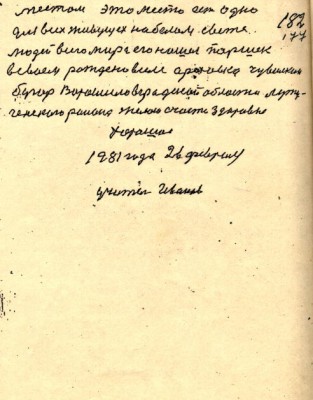 местом это место ест одно
для всех живущих на белом свете
людей всего мира его нашол паршек
в своем рожденом селе ореховка чувилкин
бугор Ворошиловградской области луту-
генского района желаю счастя здоровья
хорошога
1981 года 26 февраля
учител Иванов
182
177